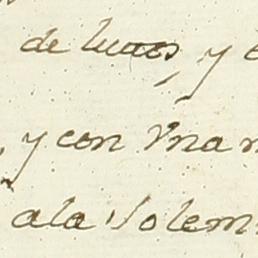 de luces, y
y con una
a la Solem